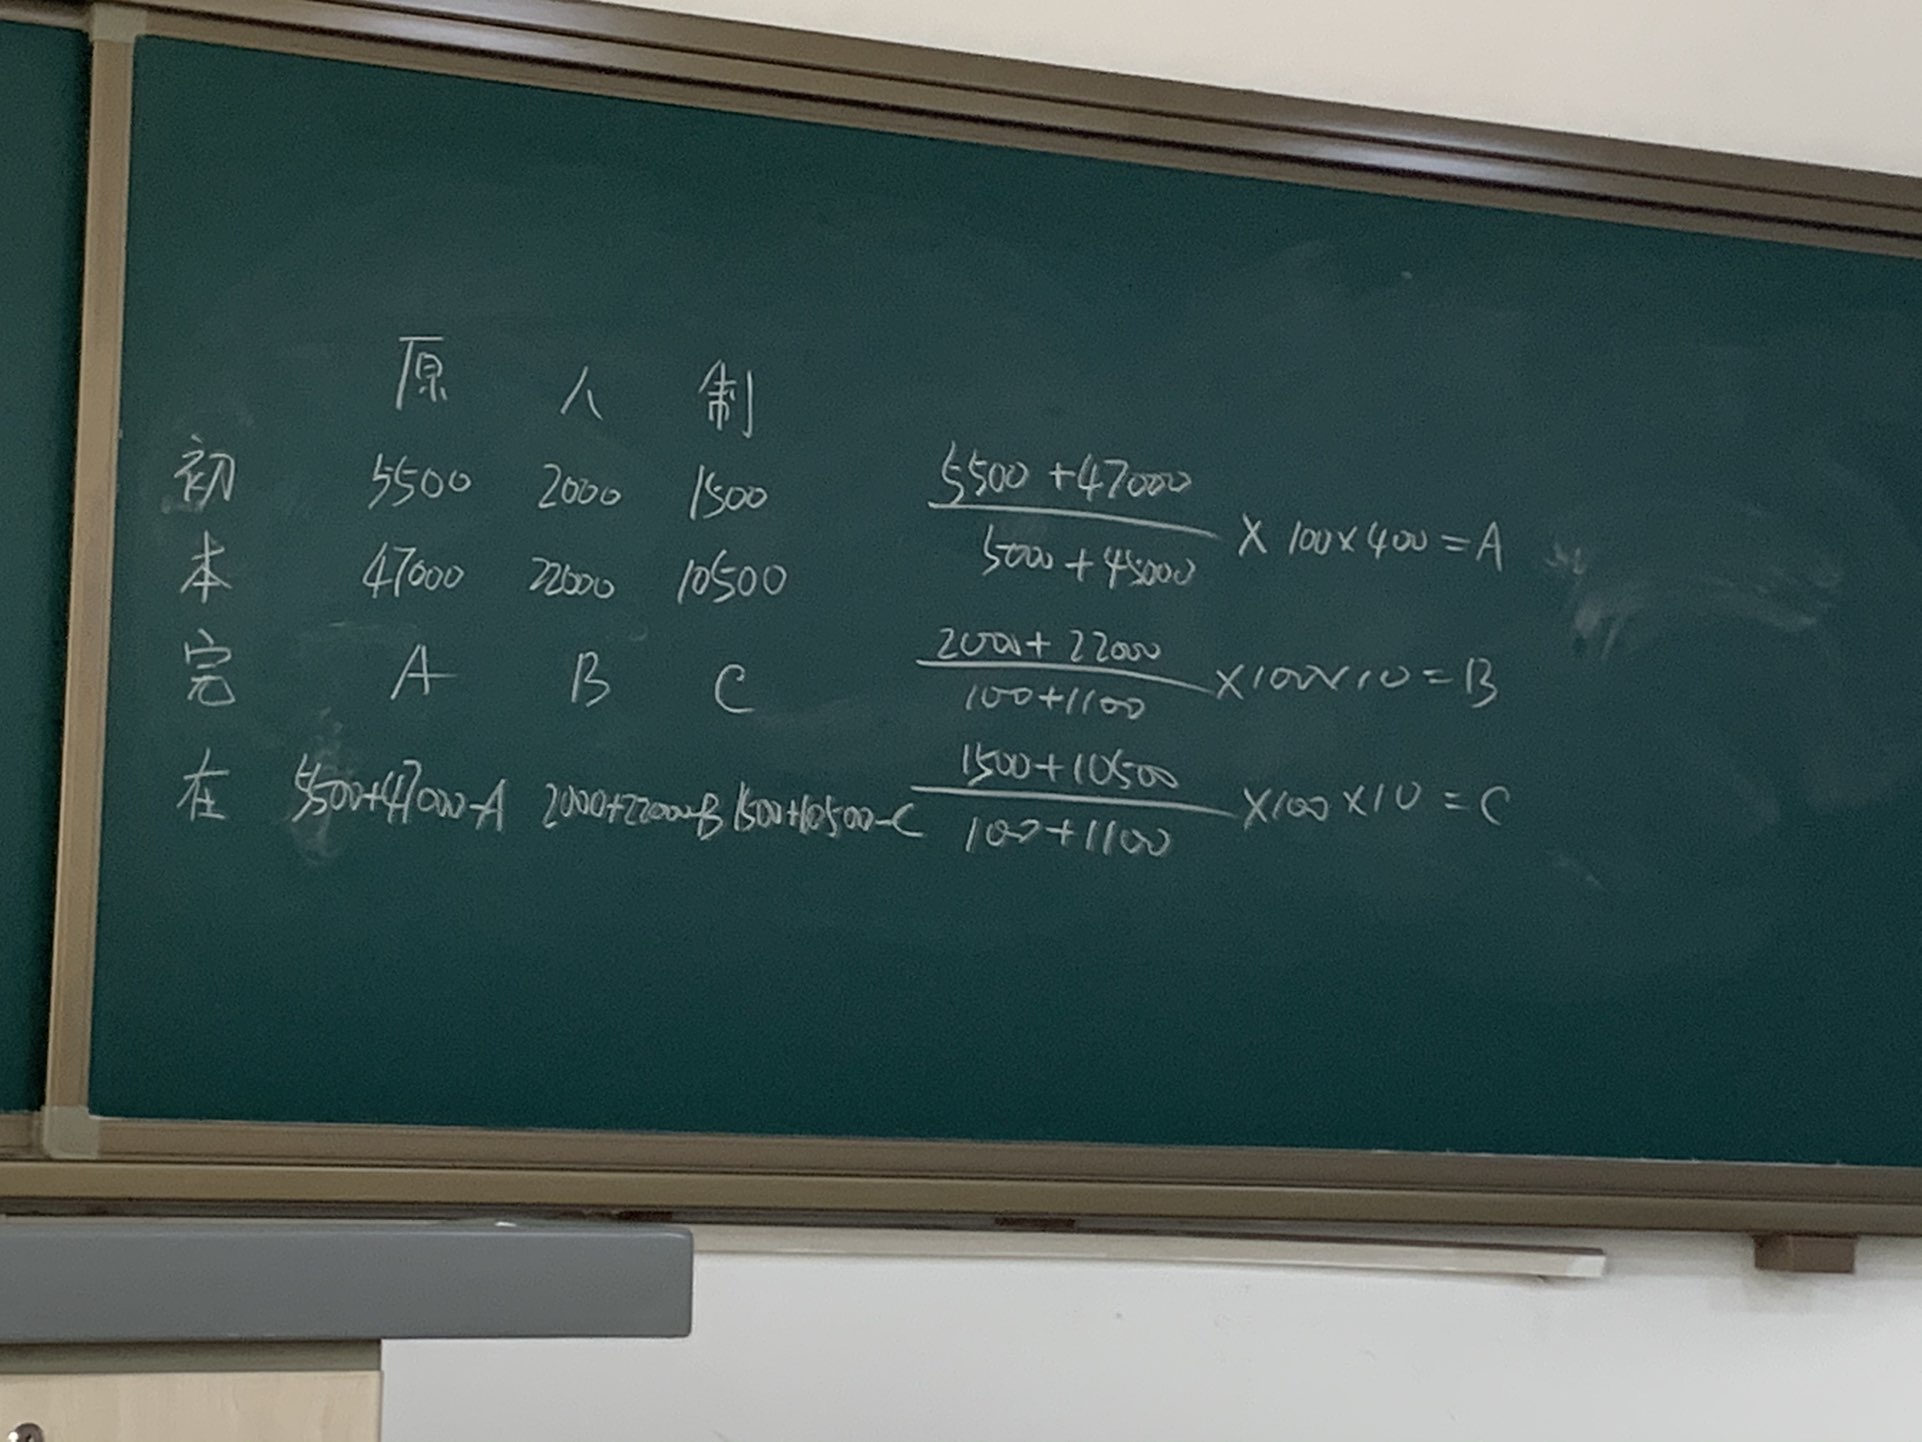 原 人 制
初 5500 2000 1500
本 47000 22000 10500
完 A B C
在 5500+47000-A 2000+22000-B 1500+10500-C
5500+47000
5000+45000
×100×400=A
2000+22000
100+1100
×100×10=B
1500+10500
100+1100
×100×10=C